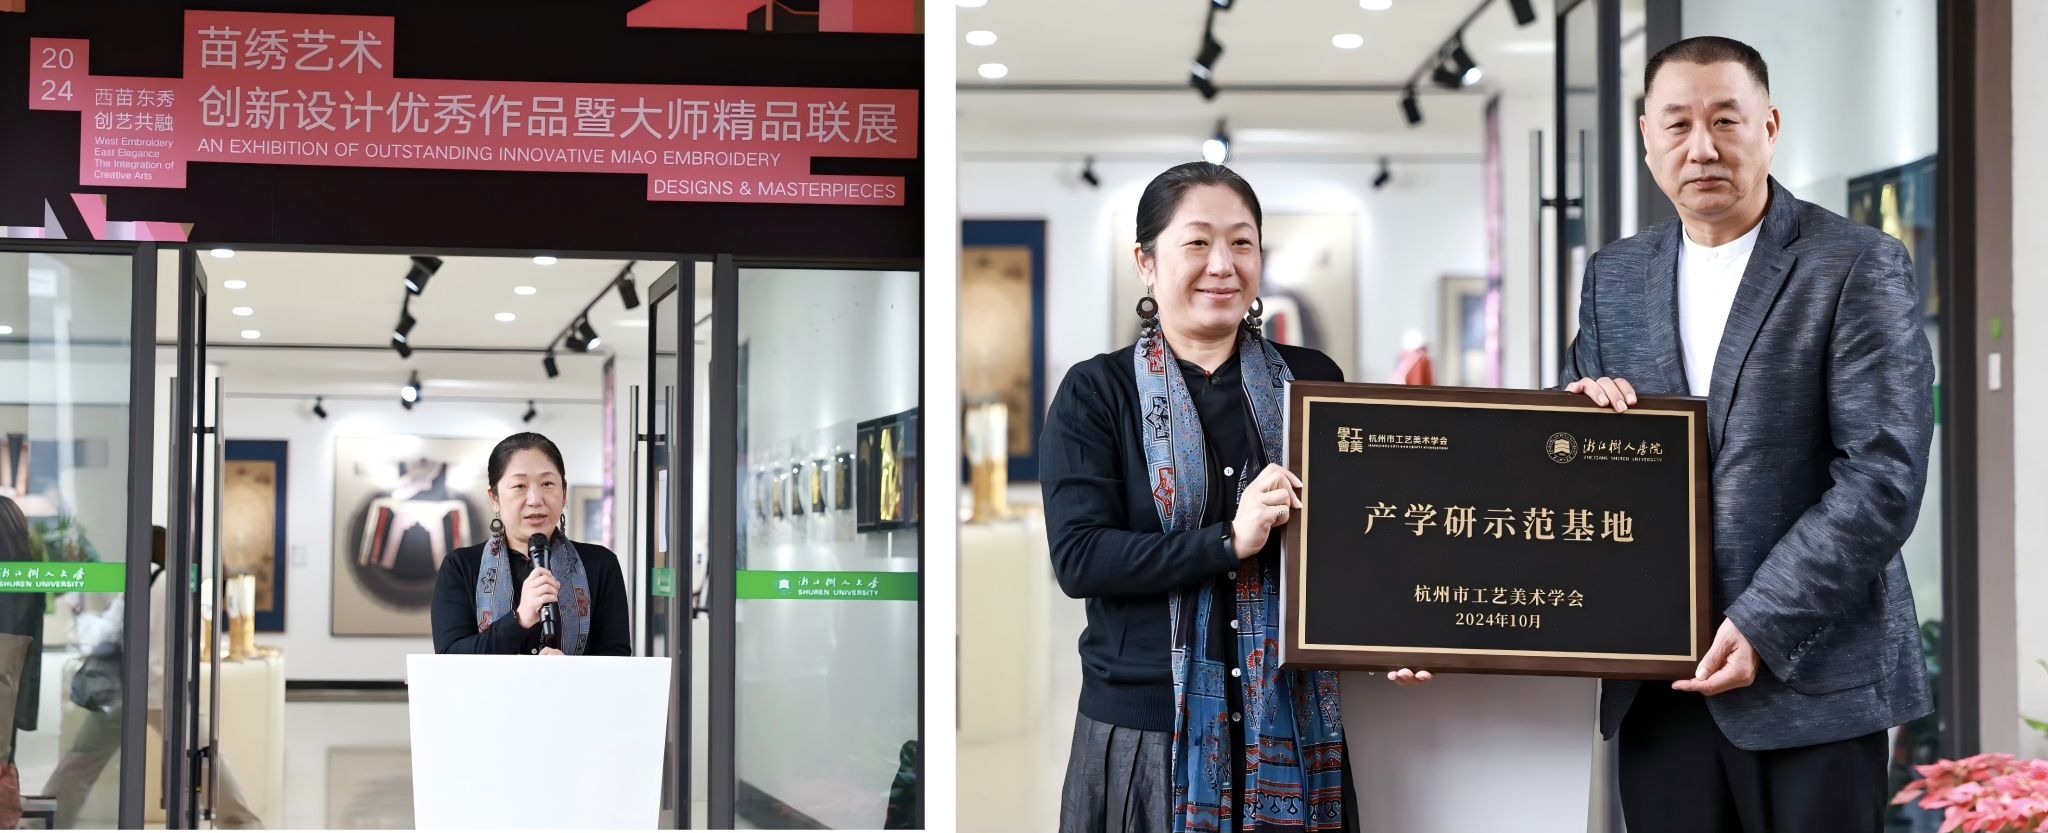 20
24
西苗东秀
创艺共融
West Embroidery
East Elegance
The Integration of
Creative Arts
苗绣艺术
创新设计优秀作品暨大师精品联展
AN EXHIBITION OF OUTSTANDING INNOVATIVE MIAO EMBROIDERY
DESIGNS & MASTERPIECES
浙江树人大学
SHUREN UNIVERSITY
浙江樹人大学
SHUREN UNIVERSITY
學工
會美
杭州市工艺美术学会
浙江樹人学院
ZHEJIANG SHUREN UNIVERSITY
产学研示范基地
杭州市工艺美术学会
2024年10月